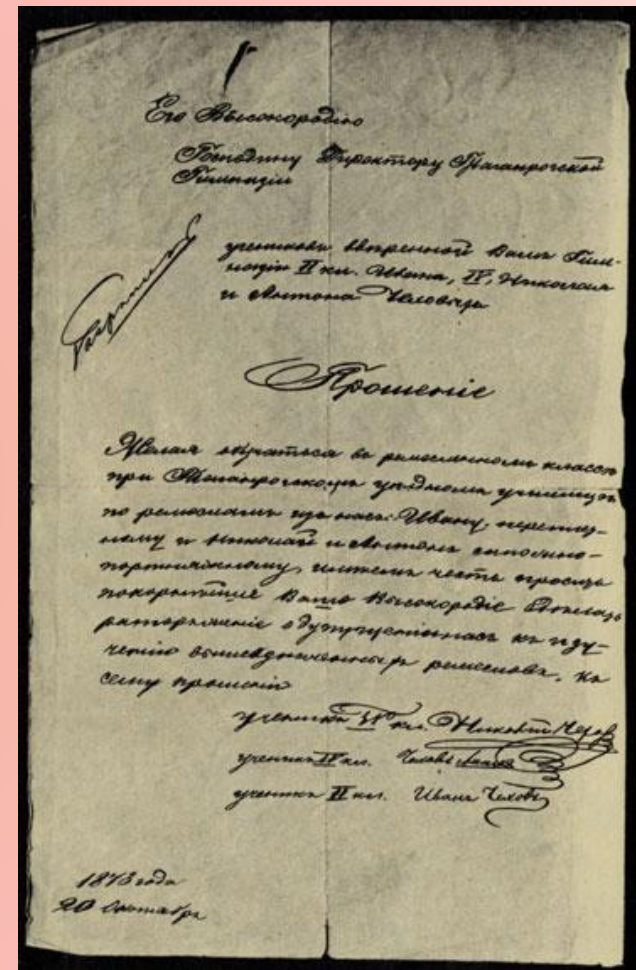 Его Высокородію
Господину Директору Таганрогской
Гимназіи
учениковъ ввѣренной Вамъ Гим-
назіи II кл. Ивана, IV, Николая
и Антона Чеховыхъ
Прошеніе
Желая обучаться въ ремесленномъ классѣ
при Таганрогскомъ уѣздномъ училищѣ
по ремесламъ изъ насъ: Ивану, переплет-
ному и Николай и Антонъ сапожно-
портняжному, имѣемъ честь просить
покорнѣйше Ваше Высокородіе сдѣлать
о допущеніи насъ къ изу-
ченію вышеозначенныхъ ремеслъ, къ
сему прошенію
ученикъ кл. Николай Чеховъ
ученикъ IV кл. Чеховъ Антонъ
ученикъ II кл. Иванъ Чеховъ
1873 года
20 Октября